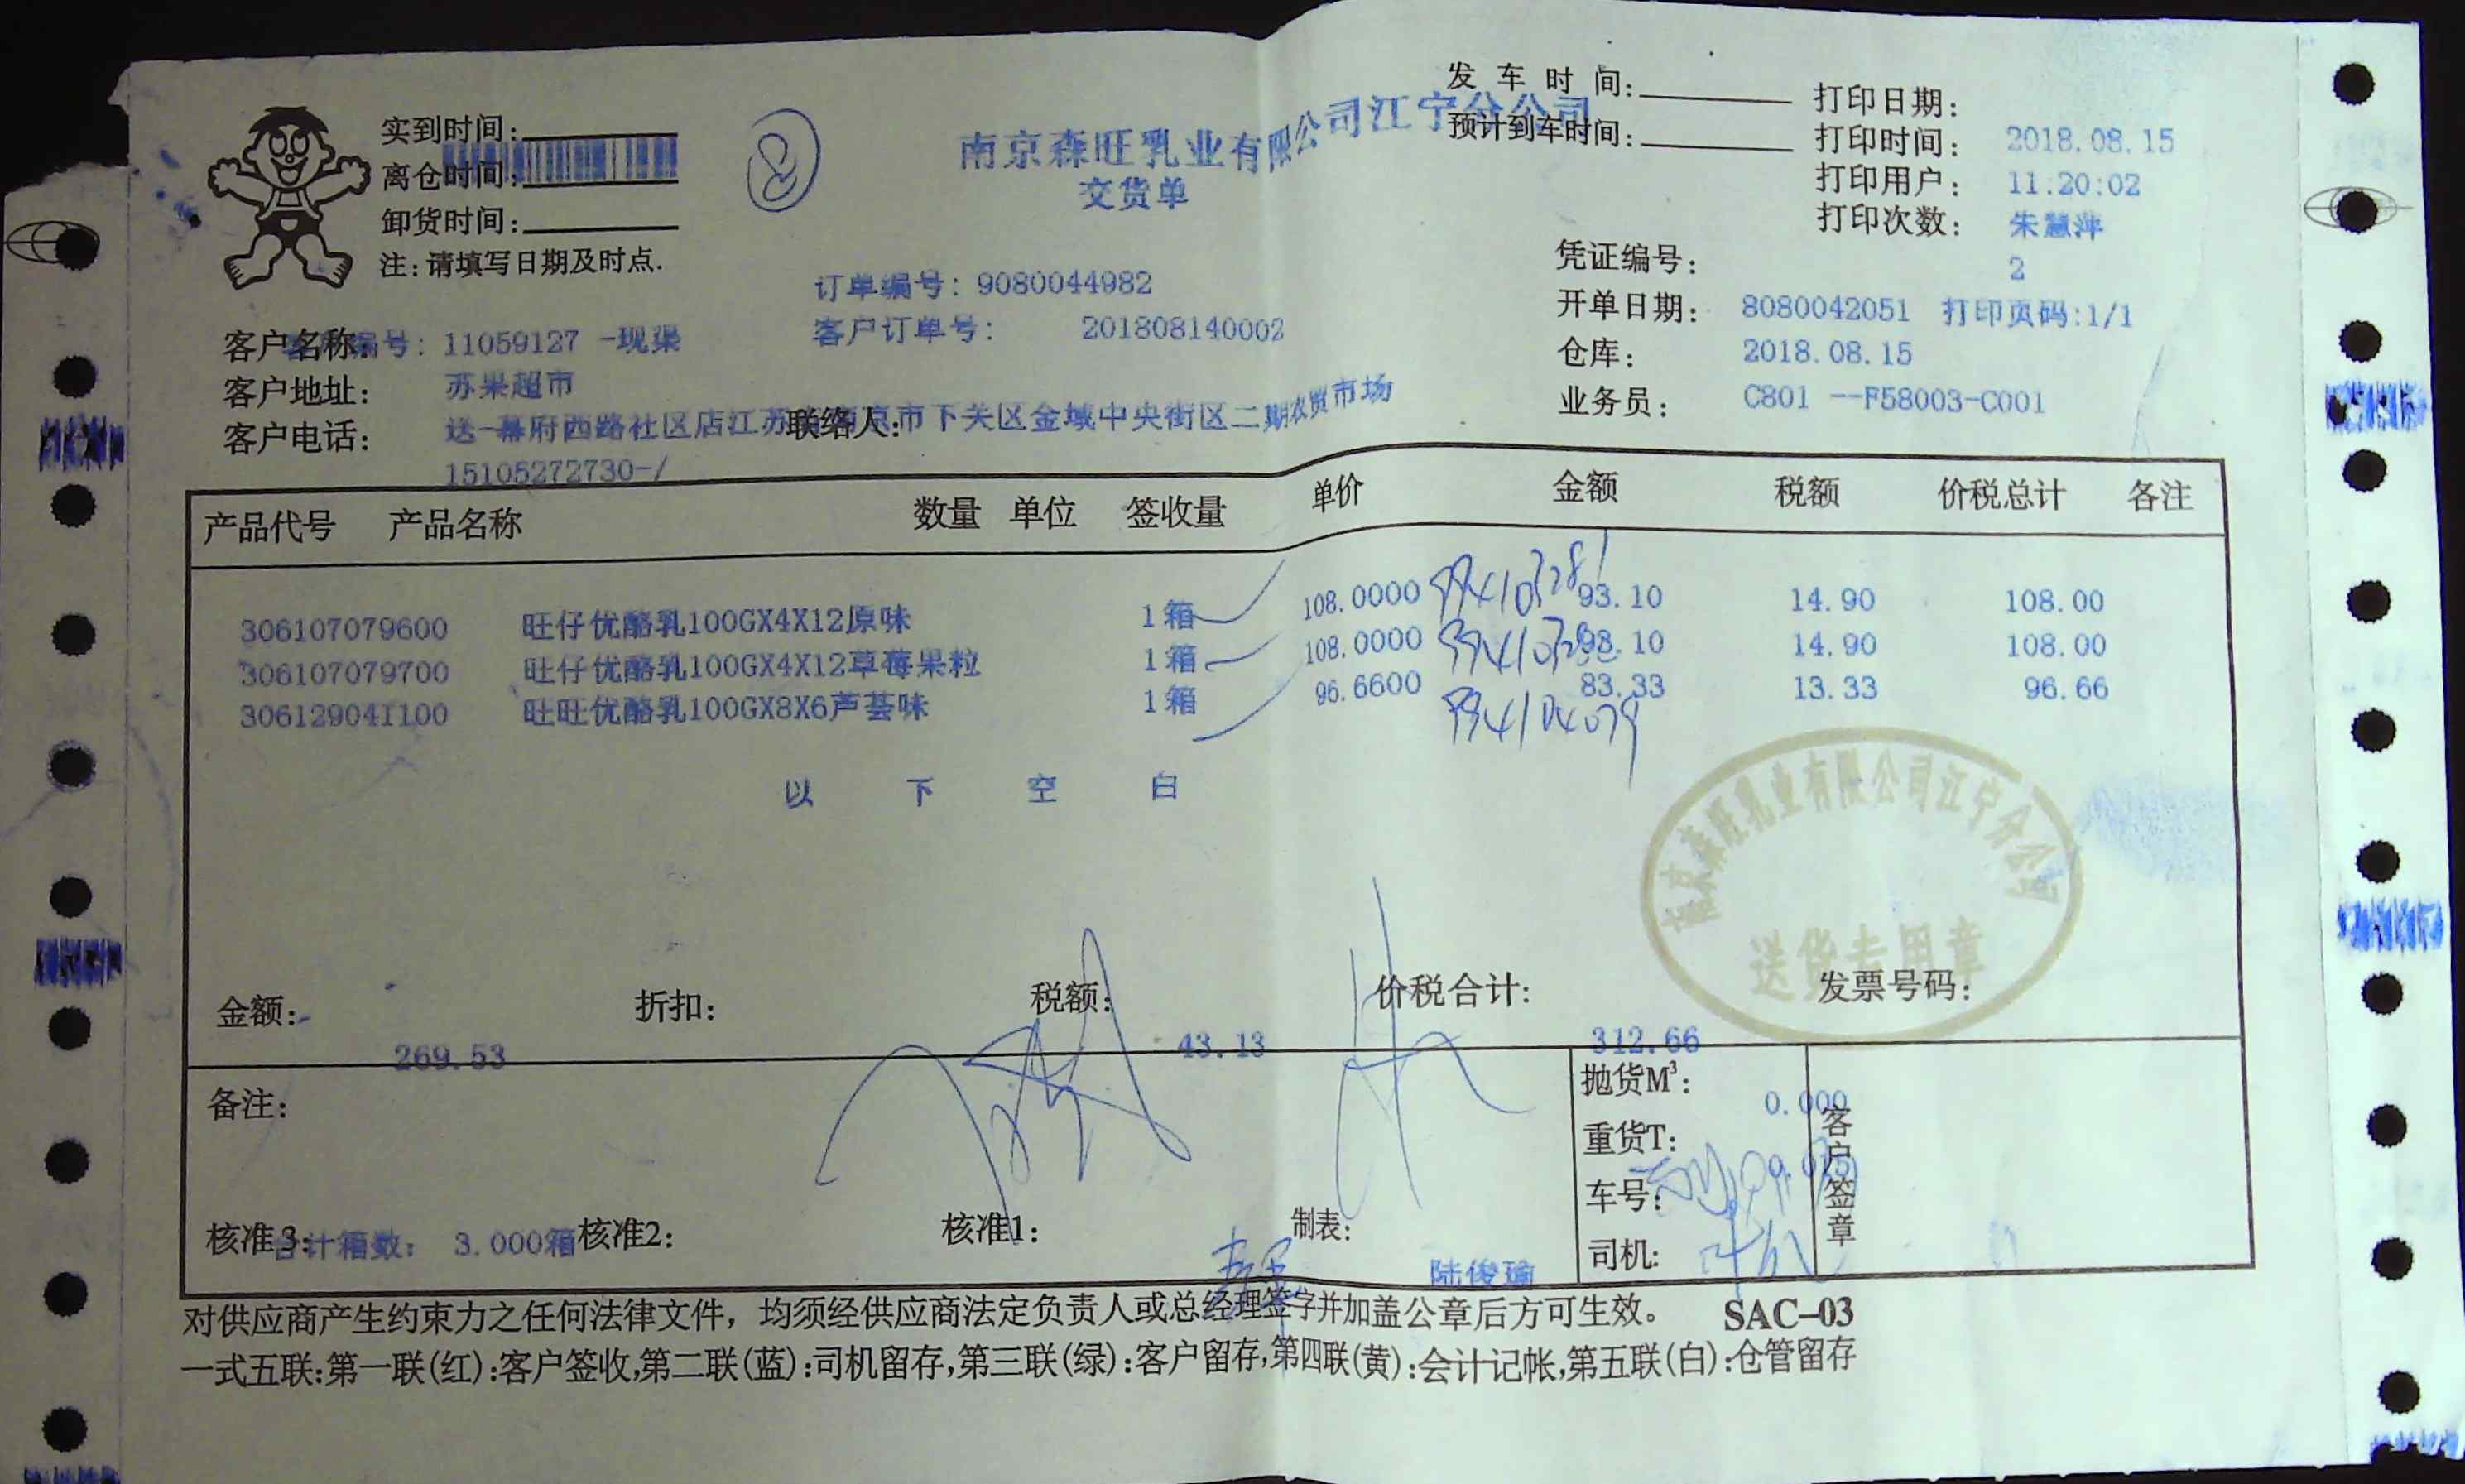 实到时间:
离仓时间:
卸货时间:
注:请填写日期及时点.
南京森旺乳业有限公司江宁分公司
交货单
发车时间:
预计到车时间:
打印日期: 2018.08.15
打印时间: 11:20:02
打印用户: 朱慧萍
打印次数: 2
订单编号: 9080044982
客户订单号: 201808140002
凭证编号: 8080042051 打印页码:1/1
开单日期: 2018.08.15
仓库: C801 --F58003-C001
业务员:
客户名称: 编号: 11059127 -现渠
客户地址: 苏果超市
客户电话: 送-幕府西路社区店江苏 南京市下关区金域中央街区二期农贸市场
联络人:
15105272730-/
产品代号 产品名称 数量 单位 签收量 单价 金额 税额 价税总计 各注
306107079600 旺仔优酪乳100GX4X12原味 1箱 108.0000 93.10 14.90 108.00
306107079700 旺仔优酪乳100GX4X12草莓果粒 1箱 108.0000 93.10 14.90 108.00
306129041100 旺旺优酪乳100GX8X6芦荟味 1箱 96.6600 83.33 13.33 96.66
以下空白
南京森旺乳业有限公司江宁分公司
送货专用章
金额: 折扣: 税额: 价税合计: 发票号码:
269.53 43.13 312.66
备注:
抛货M³: 0.000
重货T:
车号:
司机:
客户签章
核准3: 合计箱数: 3.000箱 核准2: 核准1: 制表: 陆俊瑜
对供应商产生约束力之任何法律文件，均须经供应商法定负责人或总经理签字并加盖公章后方可生效。 SAC-03
一式五联:第一联(红):客户签收,第二联(蓝):司机留存,第三联(绿):客户留存,第四联(黄):会计记帐,第五联(白):仓管留存